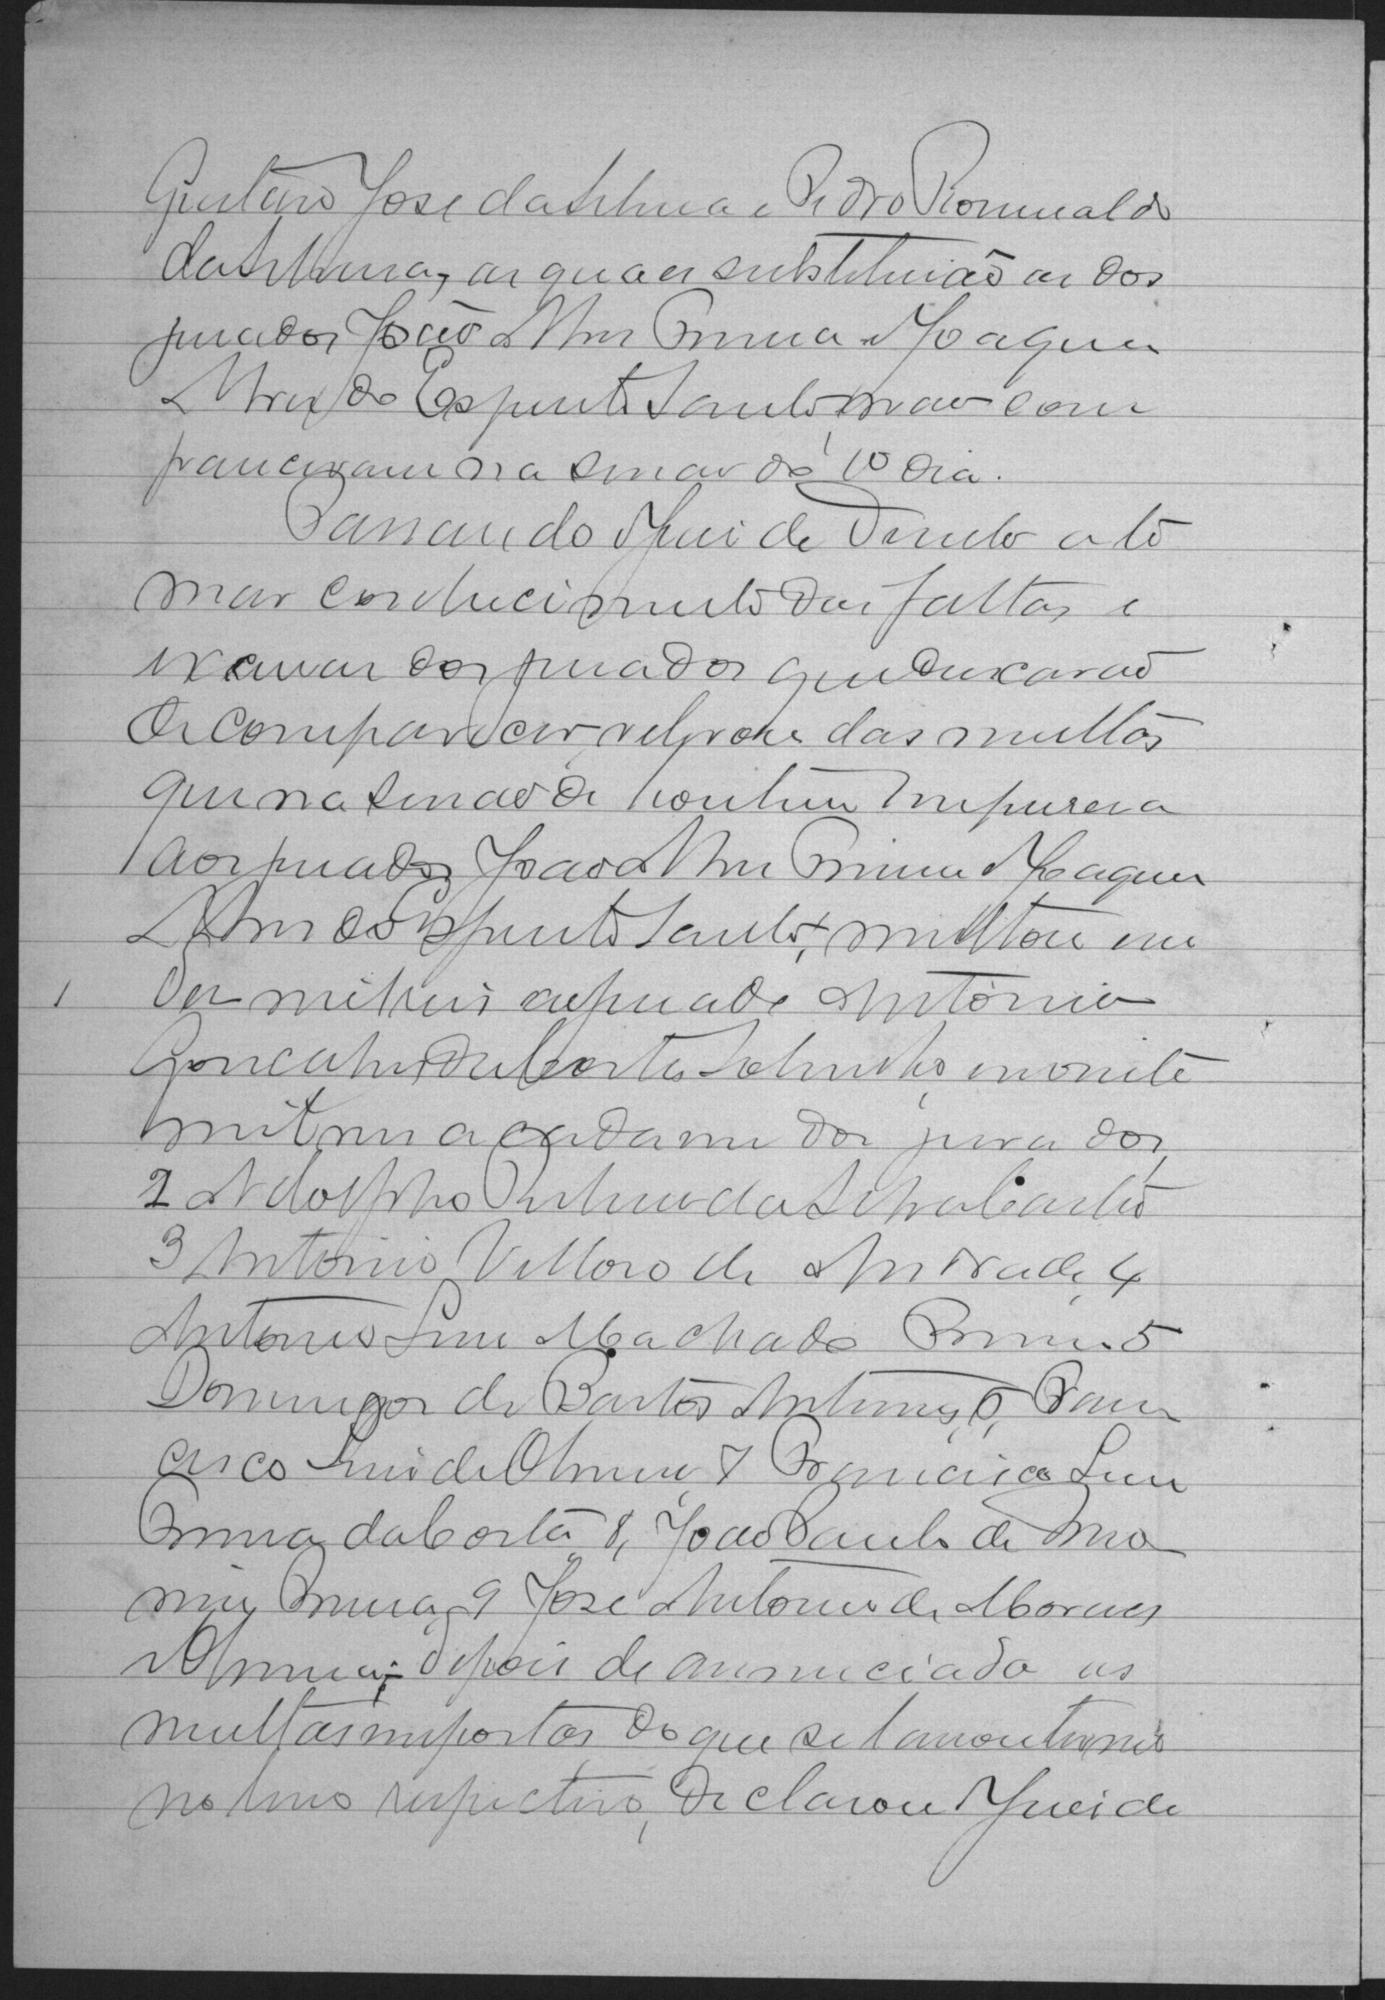 Gustavo José da Silva e Pedro Romualdo
da Silva, as quaes substituião as dos
jurados João Alves Primo e Joaquim
Alves do Espirito Santo, não com
pareceram na sessão do 1º dia.
Passando o Juiz de Direito a to
mar conhecimento das faltas e
excusas dos jurados que deixarão
de comparecer, relevou das multas
que na sessão de hontem impusera
aos jurados João Alves Primo e Joaquim
Alves do Espirito Santo, multou em
1 dez mil reis ao jurado Antonio
Gonçalves da Costa Sobrinho, e
mil reis a cada um dos jurados
2 Adolpho da Silva Castro
3 Antonio Velloso de Andrade, 4
Antonio Luiz Machado Primo 5
Domingos de Bastos Antunes, 6, Fran
cisco Luiz de Oliveira, 7 Francisco Luiz
da Costa, 8, João Paulo de
9 José Antonio de Moraes
e Oliveira; depois de annunciado as
multas impostas do que se lavou termo
no livro respectivo, declarou o Juiz de